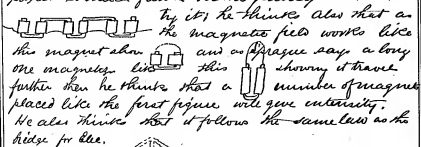 try it, he thinks also that as
the magnetic field works like
this magnet show and as Sprague says a long
one magnetizes like this showing it travel
further then he thinks that a number of magnets
placed like the first figure will give intensity.
He also thinks that it follows the same law as the
bridge for Elec.